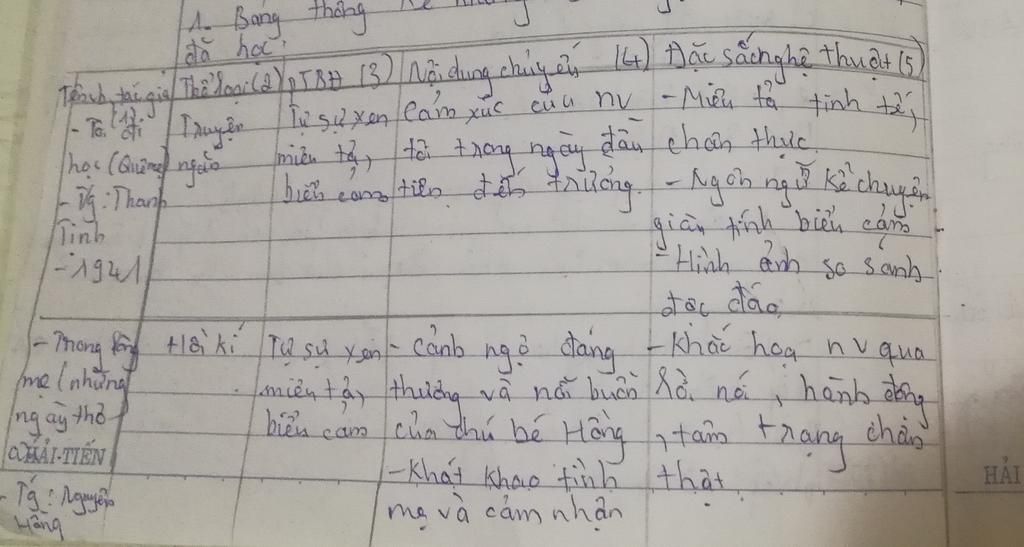 1. Bảng thống kê
đã học
Tên vb, tác giả (1) Thể loại (2) PTBĐ (3) Nội dung chủ yếu (4) Đặc sắc nghệ thuật (5)
- Tôi đi
học (Quê mẹ)
- Tg: Thanh
Tịnh
- 1941
Truyện
ngắn
Tự sự xen
miêu tả,
biểu cảm
Cảm xúc của nv
tôi trong ngày đầu
tiên đến trường.
- Miêu tả tinh tế,
chân thực.
- Ngôn ngữ kể chuyện
giàu tính biểu cảm
- Hình ảnh so sánh
độc đáo
- Trong lòng
mẹ (những
ngày thơ
HẢI TIẾN
- Tg: Nguyên
Hồng
Hồi kí
Tự sự xen
miêu tả,
biểu cảm
- Cảnh ngộ đáng
thương và nỗi buồn
của chú bé Hồng
- Khát khao tình
mẹ và cảm nhận
- Khắc hoạ nv qua
lời nói, hành động
, tâm trạng chân
thật.
HẢI